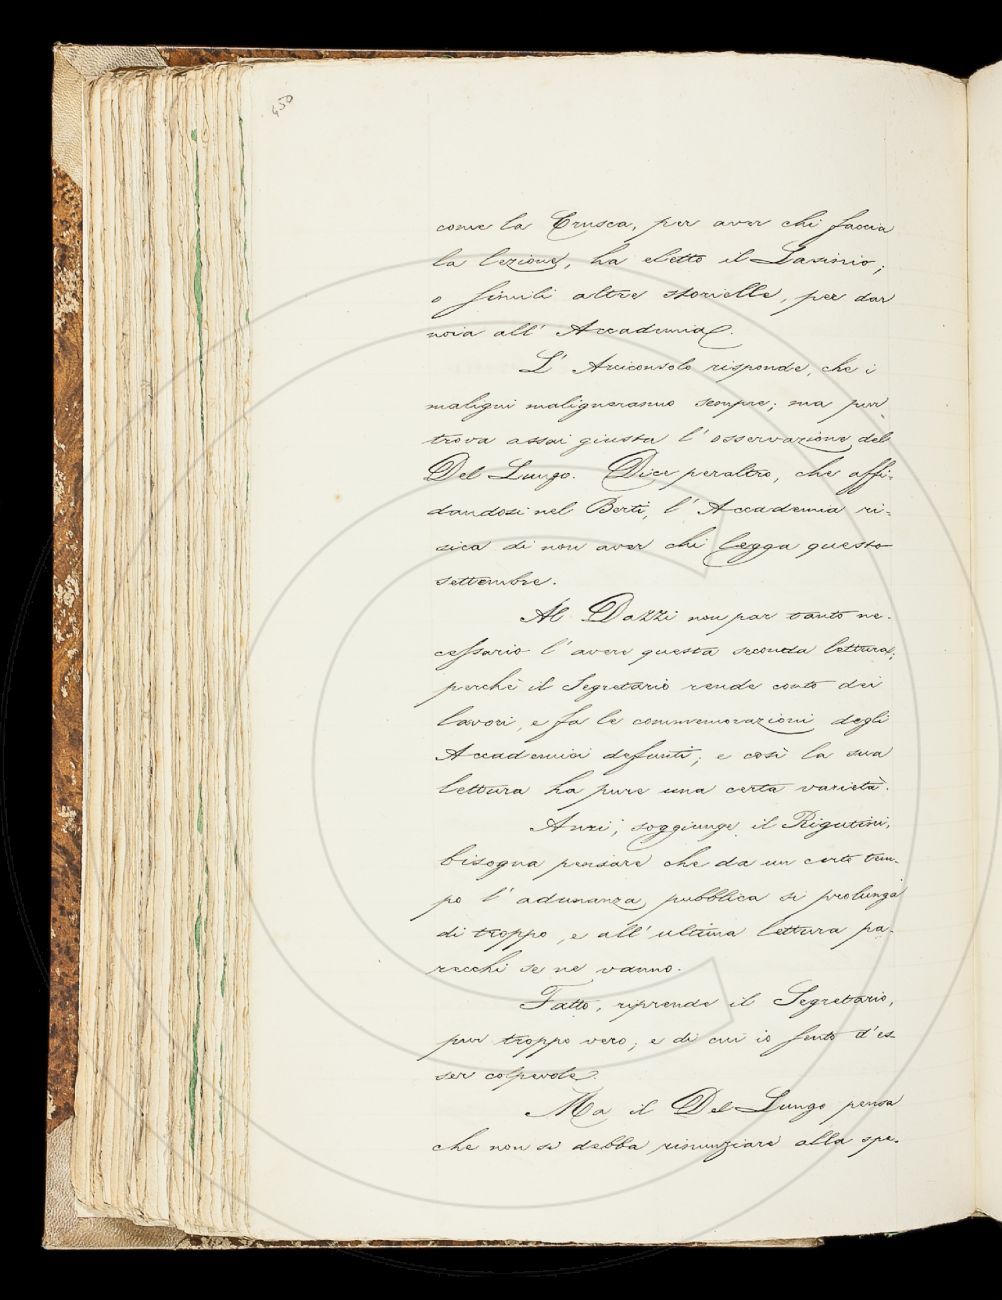 450
come la Crusca, per aver chi faccia
la lezione, ha eletto il Lasinio;
o simili altre storielle, per dar
noia all' Accademia.
L' Arciconsolo risponde, che i
maligni maligneranno sempre; ma pur
trova assai giusta l' osservazione del
Del Lungo. Dice peraltro, che affi-
dandosi nel Berti, l' Accademia ri-
sica di non aver chi legga questo
settembre.
Al Dazzi non par tanto ne-
cessario l' avere questa seconda lettura;
perchè il Segretario rende conto dei
lavori, e fa le commemorazioni degli
Accademici defunti; e così la sua
lettura ha pure una certa varietà.
Anzi, soggiunge il Rigutini,
bisogna pensare che da un certo tem-
po l' adunanza pubblica si prolunga
di troppo, e all' ultima lettura pa-
recchi se ne vanno.
Fatto, riprende il Segretario,
pur troppo vero; e di cui io sento d'es-
ser colpevole.
Ma il Del Lungo pensa
che non si debba rinunziare alla spe-